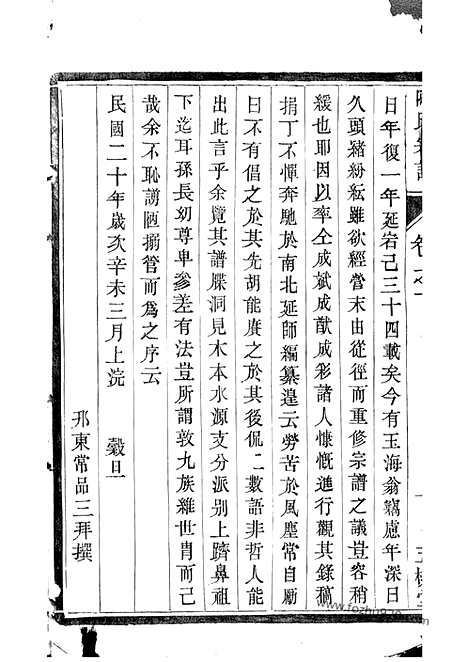 日年復一年延宕已三十四載矣今有玉海翁竊慮年深日
久頭緒紛紜雖欲經營末由從徑而重修宗譜之議豈容稍
緩也耶因以率仝成斌成猷成彩諸人慷慨進行觀其錄稿
捐丁不憚奔馳於南北延師編纂遑云勞苦於風塵常自勵
曰不有倡之於其先胡能賡之於其後侃二數語非哲人能
出此言乎余覽其譜牒洞見木本水源支分派别上躋鼻祖
下迄耳孫長幼尊卑參差有法豈所謂敦九族維世胄而已
哉余不恥謭陋搦管而爲之序云
民國二十年歲次辛未三月上浣 穀旦
邦東常品三拜撰
www.fozhu920.com